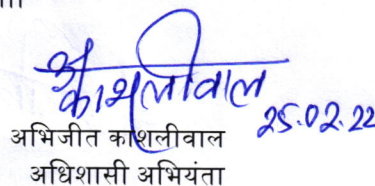 अ काशलीवाल
25.02.22
अभिजीत काशलीवाल
अधिशासी अभियंता